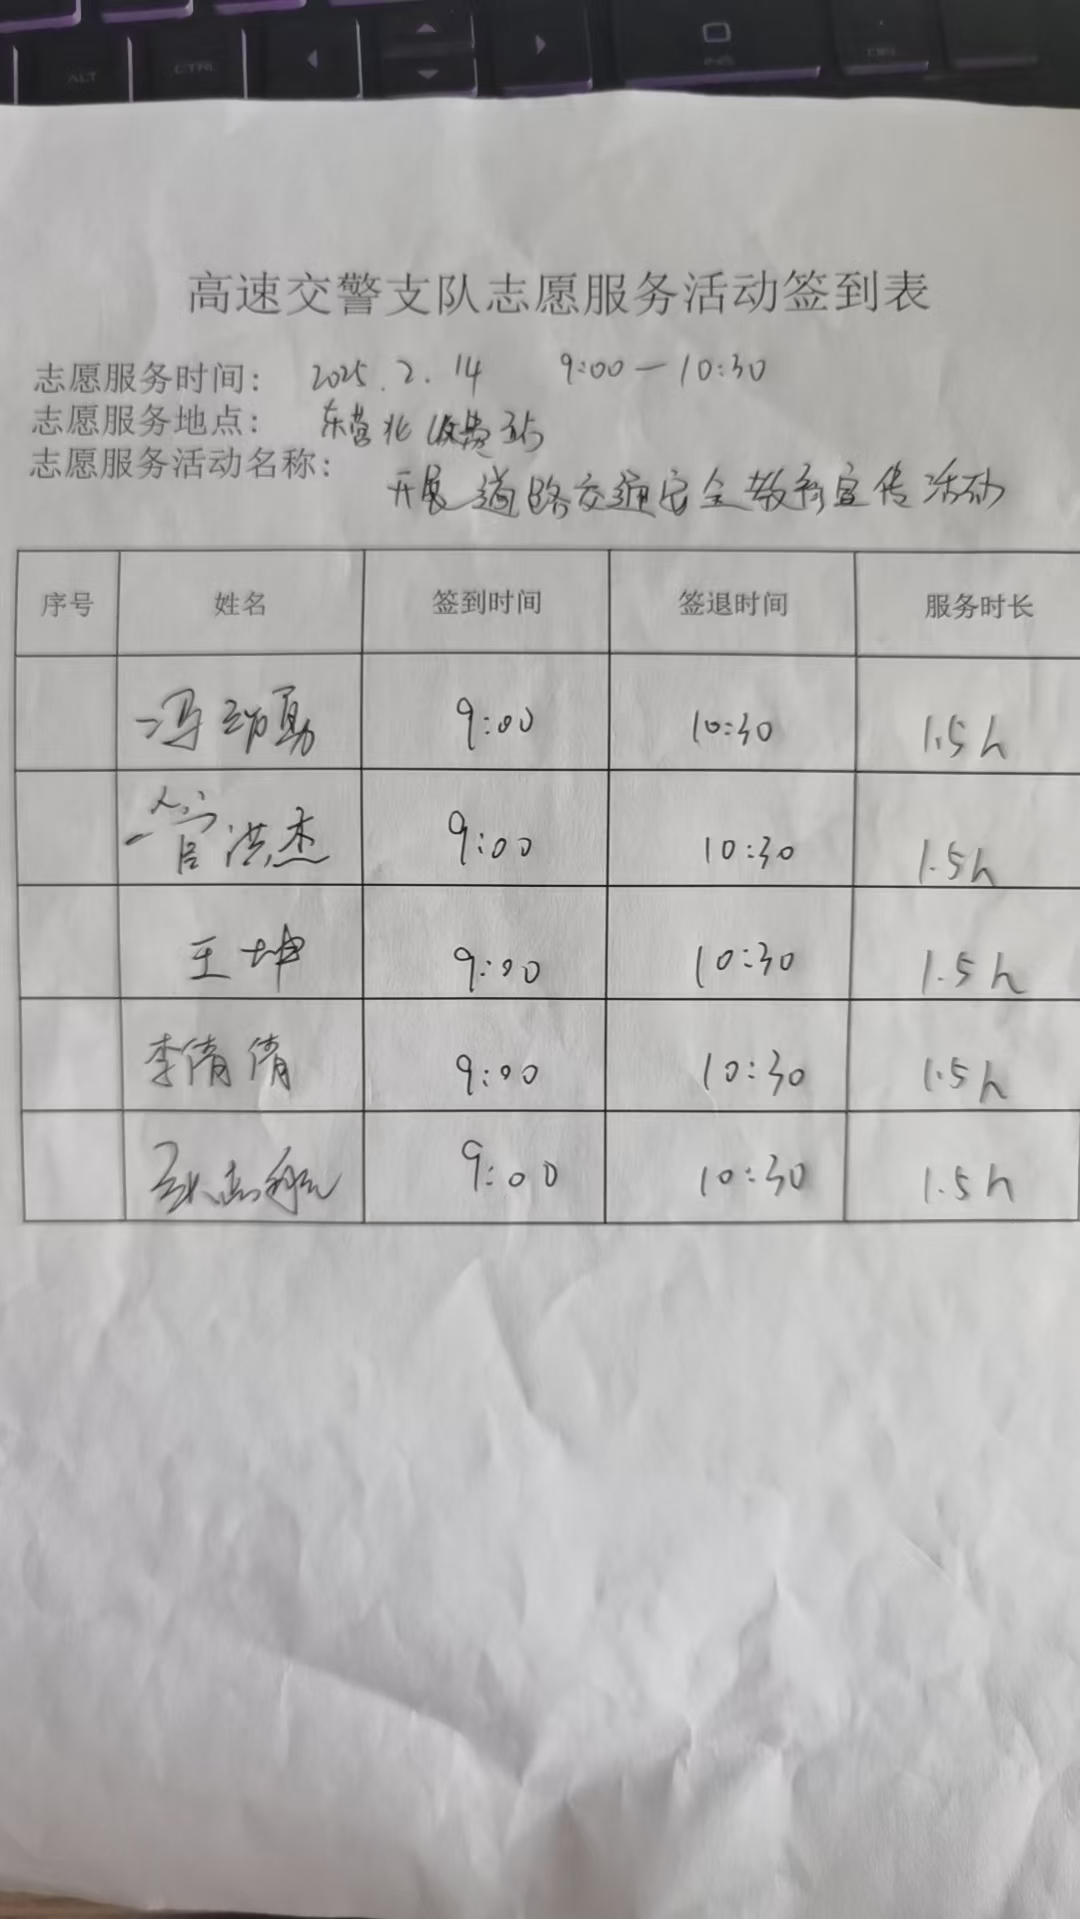 ALT CTRL INS DEL
高速交警支队志愿服务活动签到表
志愿服务时间： 2025.2.14 9:00—10:30
志愿服务地点： 东营北收费站
志愿服务活动名称： 开展道路交通安全教育宣传活动
序号 姓名 签到时间 签退时间 服务时长
冯 勇 9:00 10:30 1.5h
管洪杰 9:00 10:30 1.5h
王坤 9:00 10:30 1.5h
李倩倩 9:00 10:30 1.5h
志航 9:00 10:30 1.5h